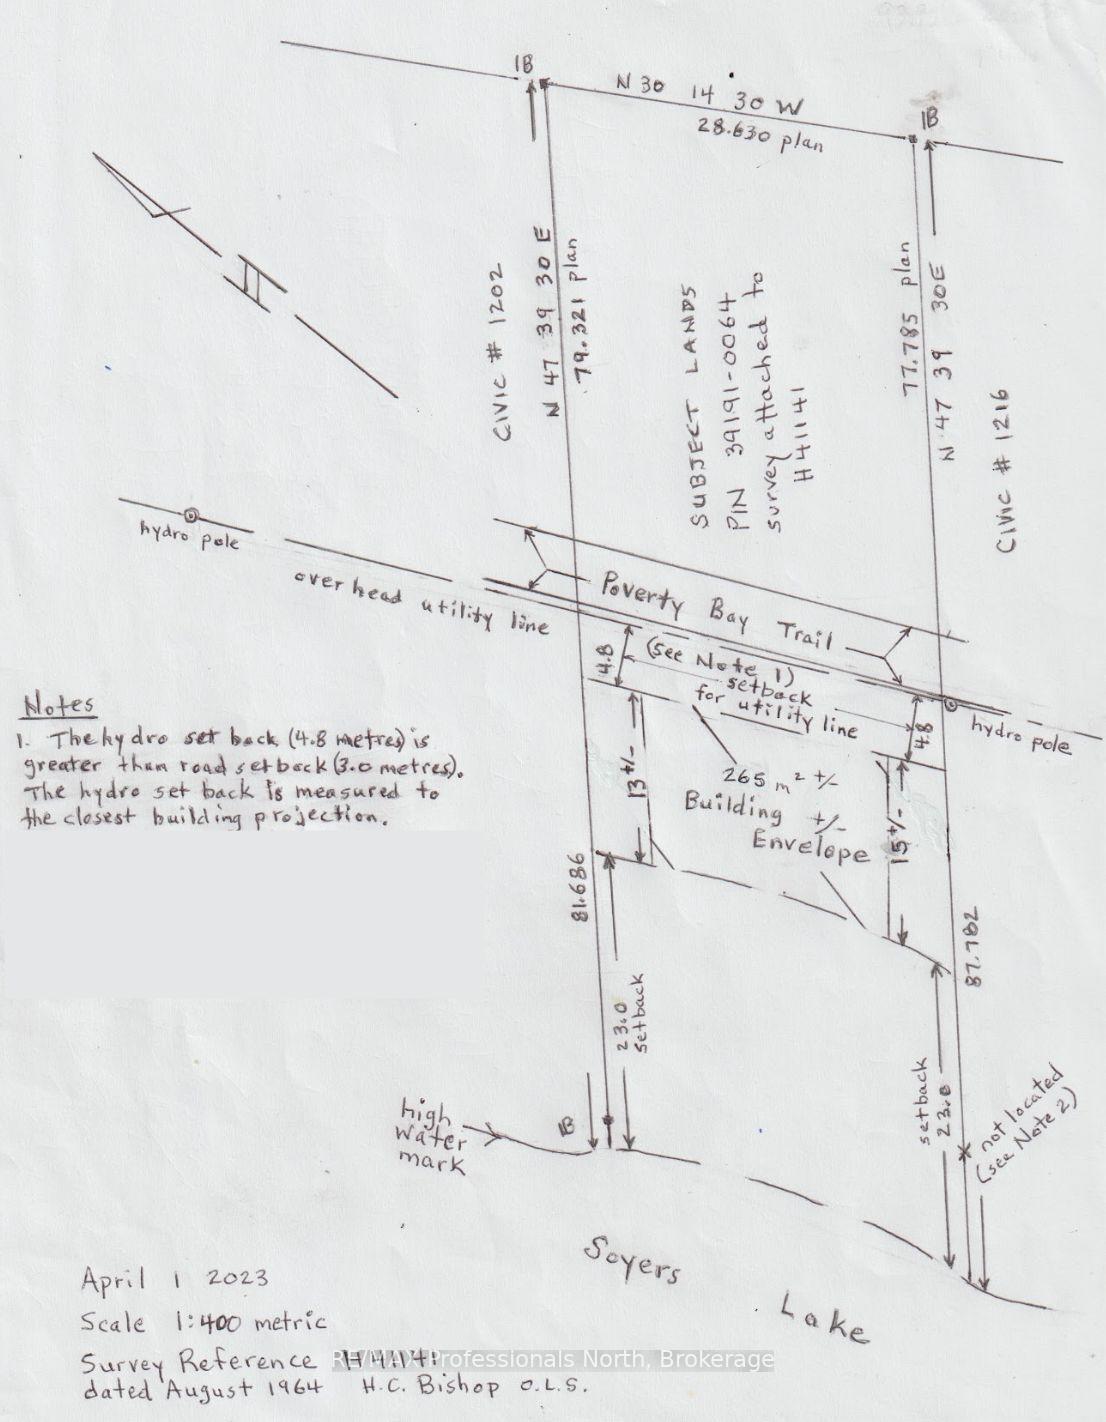 IB
N 30 14 30 W
28.630 plan
IB
CIVIC # 1202
N 47 39 30 E
79.321 plan
SUBJECT LANDS
PIN 39191-0064
survey attached to
H41141
77.785 plan
N 47 39 30E
CIVIC # 1216
hydro pole
over head utility line
Poverty Bay Trail
4.8
(see Note 1)
setback
for utility line
4.8
hydro pole
Notes
1. The hydro set back (4.8 metres) is
greater than road setback (3.0 metres).
The hydro set back is measured to
the closest building projection.
13 +/-
265 m² +/-
Building +/-
Envelope
15 +/-
81.686
87.782
23.0
setback
setback
23.0
not located
(see Note 2)
High
Water
mark
IB
Soyers
Lake
April 1 2023
Scale 1:400 metric
Survey Reference H41141
dated August 1964 H.C. Bishop O.L.S.
RE/MAX Professionals North, Brokerage